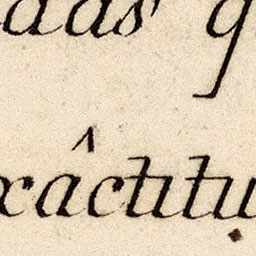 adas q
xâctitu